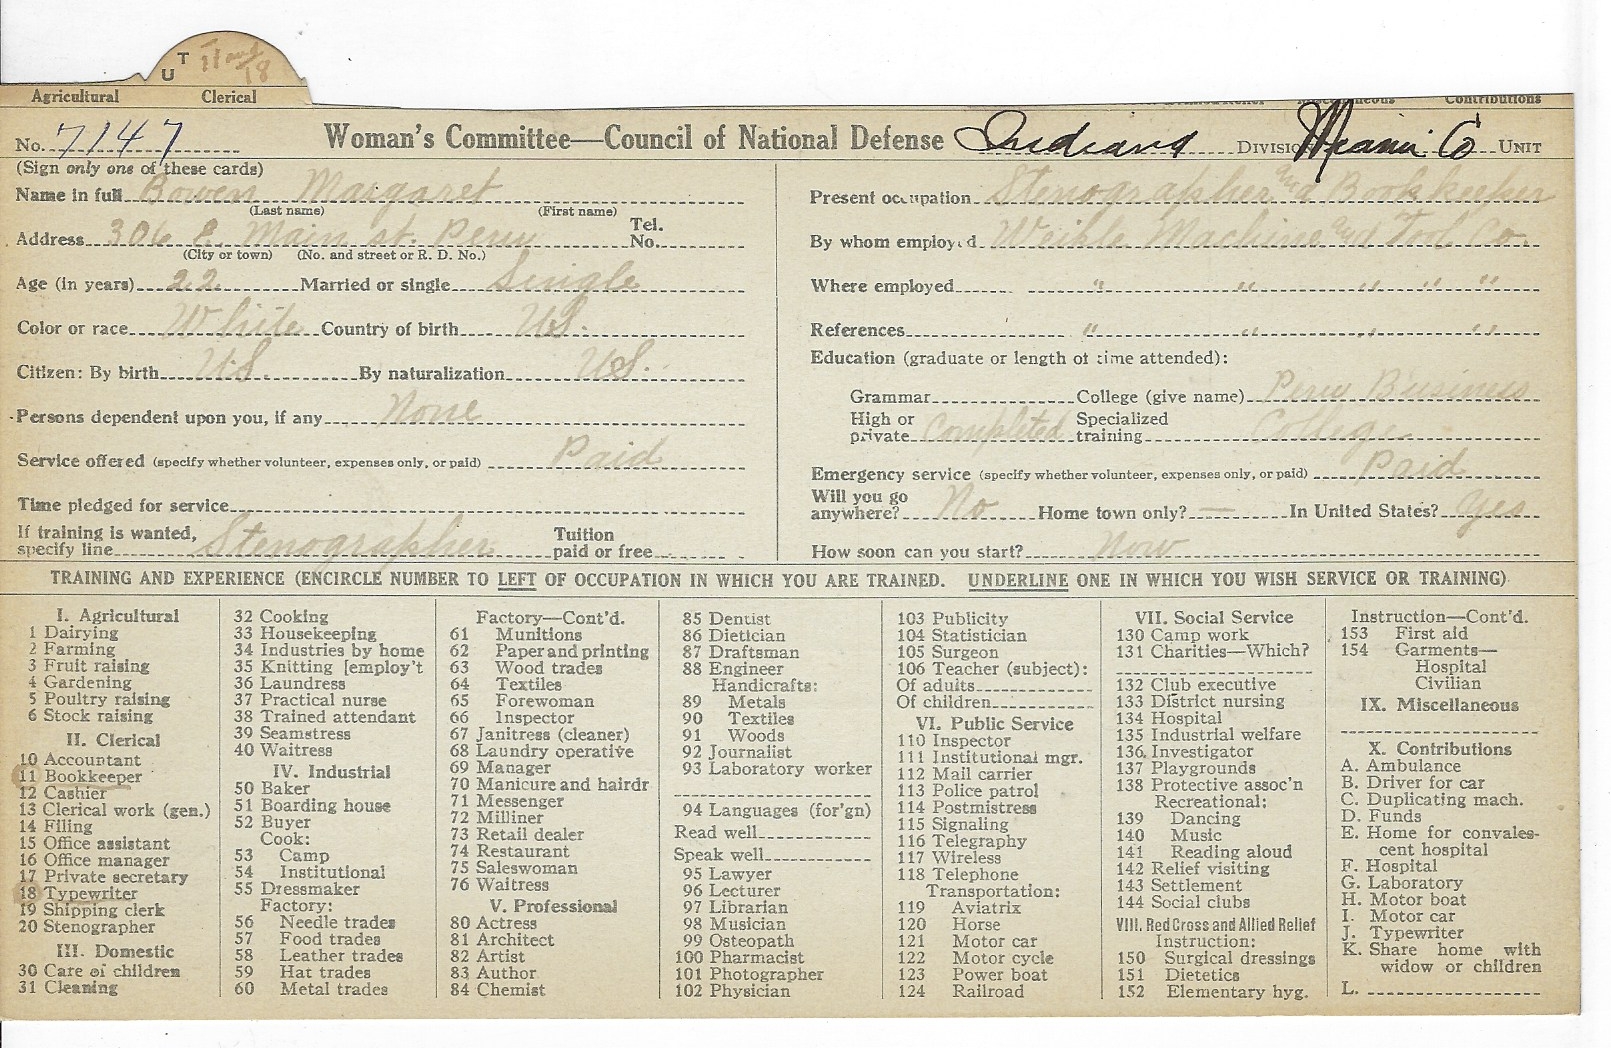 U T 11 and 18
Agricultural Clerical Contributions
No. 7147 Woman's Committee—Council of National Defense Indiana DIVISION Miami Co UNIT
(Sign only one of these cards)
Name in full Bowen Margaret
(Last name) (First name)
Address 306 E. Main St. Peru Tel. No.
(City or town) (No. and street or R. D. No.)
Age (in years) 22 Married or single Single
Color or race White Country of birth U.S.
Citizen: By birth U.S. By naturalization U.S.
Persons dependent upon you, if any None
Service offered (specify whether volunteer, expenses only, or paid) Paid
Time pledged for service
If training is wanted, specify line Stenographer Tuition paid or free
Present occupation Stenographer and Bookkeeper
By whom employed Machine and Tool Co.
Where employed " " " " "
References " " " "
Education (graduate or length of time attended):
Grammar College (give name) Peru Business
High or private Completed Specialized training College
Emergency service (specify whether volunteer, expenses only, or paid) Paid
Will you go anywhere? No Home town only? — In United States? Yes
How soon can you start? Now
TRAINING AND EXPERIENCE (ENCIRCLE NUMBER TO LEFT OF OCCUPATION IN WHICH YOU ARE TRAINED. UNDERLINE ONE IN WHICH YOU WISH SERVICE OR TRAINING)
I. Agricultural
1 Dairying
2 Farming
3 Fruit raising
4 Gardening
5 Poultry raising
6 Stock raising
II. Clerical
10 Accountant
11 Bookkeeper
12 Cashier
13 Clerical work (gen.)
14 Filing
15 Office assistant
16 Office manager
17 Private secretary
18 Typewriter
19 Shipping clerk
20 Stenographer
III. Domestic
30 Care of children
31 Cleaning
32 Cooking
33 Housekeeping
34 Industries by home
35 Knitting [employ't
36 Laundress
37 Practical nurse
38 Trained attendant
39 Seamstress
40 Waitress
IV. Industrial
50 Baker
51 Boarding house
52 Buyer
Cook:
53 Camp
54 Institutional
55 Dressmaker
Factory:
56 Needle trades
57 Food trades
58 Leather trades
59 Hat trades
60 Metal trades
Factory—Cont'd.
61 Munitions
62 Paper and printing
63 Wood trades
64 Textiles
65 Forewoman
66 Inspector
67 Janitress (cleaner)
68 Laundry operative
69 Manager
70 Manicure and hairdr
71 Messenger
72 Milliner
73 Retail dealer
74 Restaurant
75 Saleswoman
76 Waitress
V. Professional
80 Actress
81 Architect
82 Artist
83 Author
84 Chemist
85 Dentist
86 Dietician
87 Draftsman
88 Engineer
Handicrafts:
89 Metals
90 Textiles
91 Woods
92 Journalist
93 Laboratory worker
94 Languages (for'gn)
Read well
Speak well
95 Lawyer
96 Lecturer
97 Librarian
98 Musician
99 Osteopath
100 Pharmacist
101 Photographer
102 Physician
103 Publicity
104 Statistician
105 Surgeon
106 Teacher (subject):
Of adults
Of children
VI. Public Service
110 Inspector
111 Institutional mgr.
112 Mail carrier
113 Police patrol
114 Postmistress
115 Signaling
116 Telegraphy
117 Wireless
118 Telephone
Transportation:
119 Aviatrix
120 Horse
121 Motor car
122 Motor cycle
123 Power boat
124 Railroad
VII. Social Service
130 Camp work
131 Charities—Which?
132 Club executive
133 District nursing
134 Hospital
135 Industrial welfare
136 Investigator
137 Playgrounds
138 Protective assoc'n
Recreational:
139 Dancing
140 Music
141 Reading aloud
142 Relief visiting
143 Settlement
144 Social clubs
VIII. Red Cross and Allied Relief
Instruction:
150 Surgical dressings
151 Dietetics
152 Elementary hyg.
Instruction—Cont'd.
153 First aid
154 Garments—
Hospital
Civilian
IX. Miscellaneous
X. Contributions
A. Ambulance
B. Driver for car
C. Duplicating mach.
D. Funds
E. Home for convales-
cent hospital
F. Hospital
G. Laboratory
H. Motor boat
I. Motor car
J. Typewriter
K. Share home with
widow or children
L.